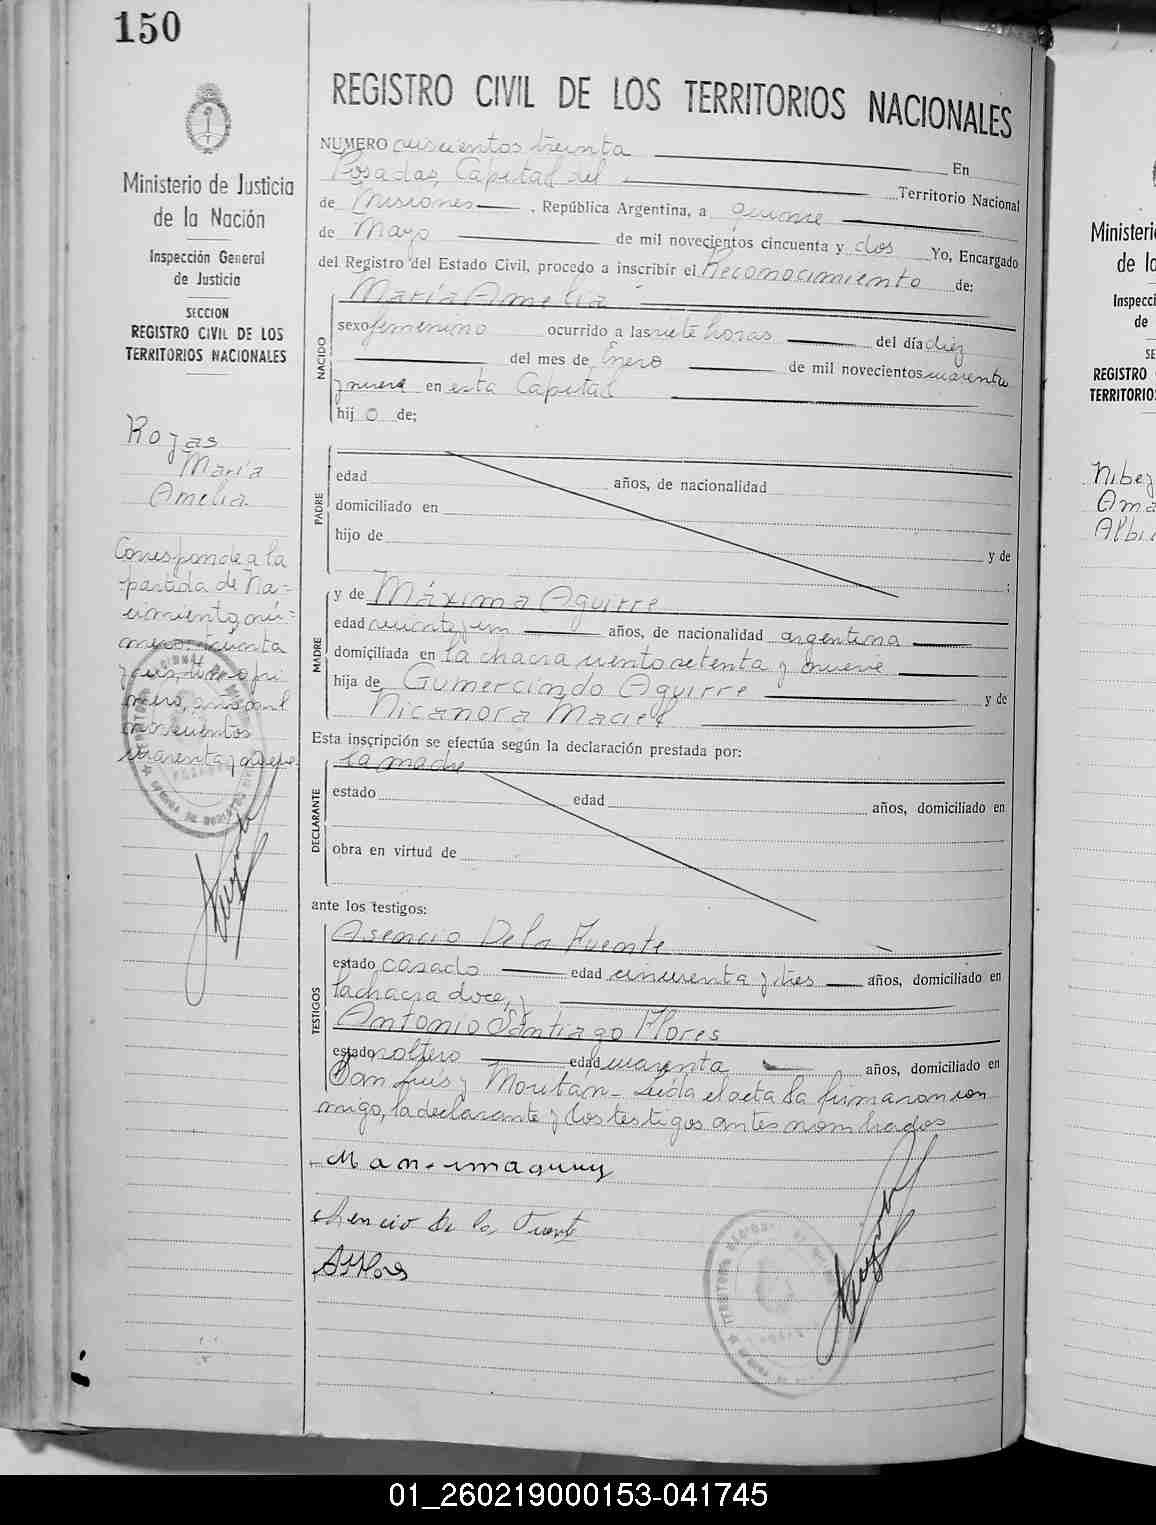 150
Ministerio de Justicia
de la Nación
Inspección General
de Justicia
SECCION
REGISTRO CIVIL DE LOS
TERRITORIOS NACIONALES
Rojas
María
Amelia
Corresponde a la
partida de Na-
cimiento nú-
mero treinta
y seis, tomo pri
mero, año mil
novecientos
cuarenta y nueve
REGISTRO CIVIL DE LOS TERRITORIOS NACIONALES
NUMERO treinta En
Posadas, Capital del Territorio Nacional
de Misiones, República Argentina, a quince
de Mayo de mil novecientos cincuenta y dos Yo, Encargado
del Registro del Estado Civil, procedo a inscribir el Reconocimiento de:
NACIDO
María Amelia
sexo femenino ocurrido a las siete horas del día diez
del mes de Enero de mil novecientos cuarenta
y nueve en esta Capital
hij o de;
PADRE
edad años, de nacionalidad
domiciliado en
hijo de
y de
;
MADRE
y de Máxima Aguirre
edad veinte y un años, de nacionalidad argentina
domiciliada en la chacra ciento setenta y nueve
hija de Gumercindo Aguirre y de
Nicanora Maciel
Esta inscripción se efectúa según la declaración prestada por:
DECLARANTE
la madre
estado edad años, domiciliado en
obra en virtud de
ante los testigos:
TESTIGOS
Asencio De la Fuente
estado casado edad cincuenta y tres años, domiciliado en
la chacra doce, y
Antonio Santiago Flores
estado soltero edad cuarenta años, domiciliado en
San Luis y Moutan- Leída el acta la firmaron con
migo, la declarante y los testigos antes nombrados
Asencio de la Fuente
Ministerio
de la
Inspecci
de
SE
REGISTRO
TERRITORIOS
Ama
Albi
01_260219000153-041745